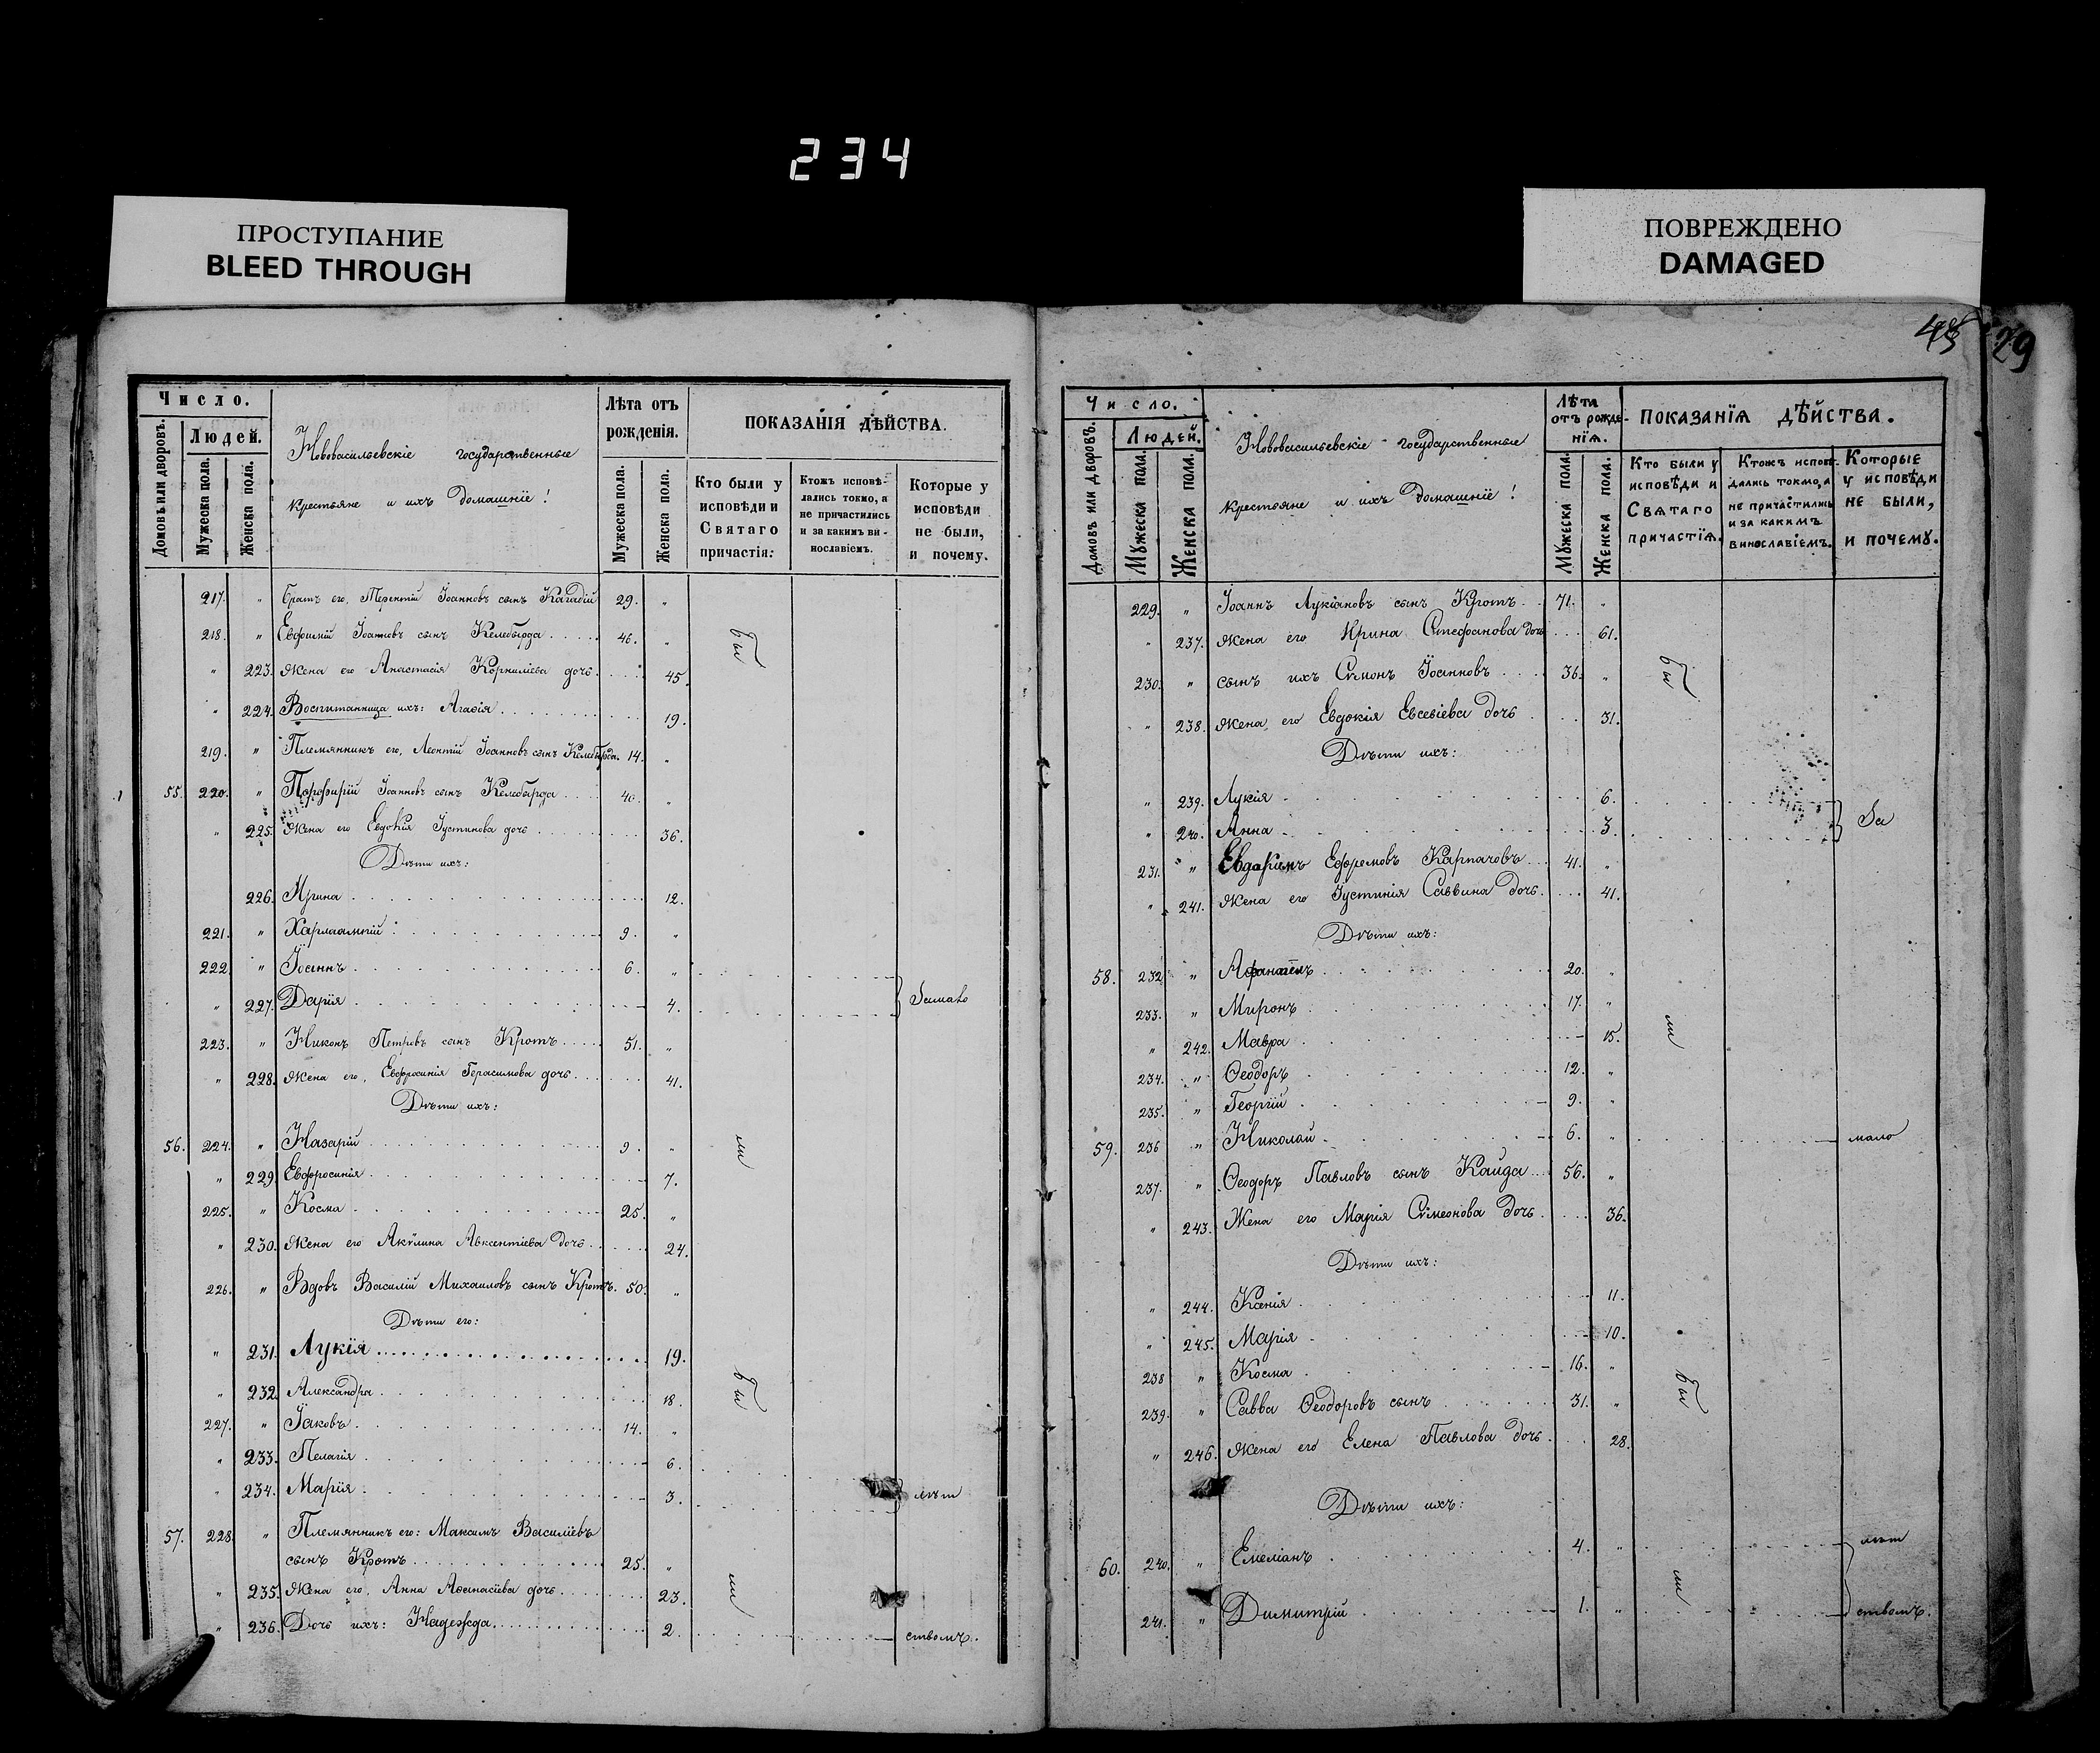 234
ПРОСТУПАНИЕ
BLEED THROUGH
ПОВРЕЖДЕНО
DAMAGED
Число.
Домовъ или дворовъ.
Людей.
Мужеска пола.
Женска пола.
Нововасильевскіе государственные
крестьяне и ихъ домашніе!
Лѣта отъ
рожденія.
Мужеска пола.
Женска пола.
ПОКАЗАНІЯ ДѢЙСТВА.
Кто были у
исповѣди и
Святаго
причастія:
Ктожъ исповѣ-
дались токмо, а
не причастились
и за какимъ ви-
нословіемъ.
Которые у
исповѣди
не были,
и почему.
217. " Братъ его, Терентій Іоанновъ сынъ Кагадій 29. "
218. " Евфимій Іоанновъ сынъ Келебърда 46. " бы
" 223. Жена его Анастасія Корниліева дочь 45.
" 224. Воспитанница ихъ: Агафія 19.
219. " Племянникъ его, Леонтій Іоанновъ сынъ Келебѣрда. 14. "
55. 220. " Порфирій Іоанновъ сынъ Келебѣрда 40. "
" 225. Жена его Евдокія Іустинова дочь 36.
Дѣти ихъ:
226. Ирина 12.
221. " Харлампій 9. "
222. " Іоаннъ 6. "
" 227. Дарія 4. Замало
223. " Никонъ Петровъ сынъ Кротъ 51. "
" 228. Жена его, Евфросинія Герасимова дочь 41.
Дѣти ихъ:
56. 224. " Назарій 9. " ли
" 229. Евфросинія 7.
225. " Косма 25. "
" 230. Жена его Акѵлина Авксентіева дочь 24.
226. " Вдовъ Василій Михаиловъ сынъ Кротъ. 50. "
Дѣти его:
" 231. Лукія 19.
" 232. Александра 18. бы
227. " Іаковъ 14. "
" 233. Пелагія 6.
" 234. Марія 3. лѣт
57. 228. " Племянникъ его: Максимъ Василіевъ
сынъ Кротъ 25. "
" 235. Жена его, Анна Аѳанасіева дочь 23. ли
" 236. Дочь ихъ: Надежда 2. ствомъ.
29
Число.
Домовъ или дворовъ.
Людей.
Мужеска пола.
Женска пола.
Нововасильевскіе государственные
крестьяне и ихъ домашніе!
Лѣта
отъ рожде-
нія.
Мужеска пола.
Женска пола.
ПОКАЗАНІЯ ДѢЙСТВА.
Кто были у
исповѣди и
Святаго
причастія.
Ктожъ исповѣ-
дались токмо, а
не причастились
и за какимъ
винославіемъ.
Которые
у исповѣди
не были,
и почему.
229. " Іоаннъ Лукіановъ сынъ Кротъ 71. "
" 237. Жена его Ирина Стефанова дочь 61.
230. " сынъ ихъ Сѵмонъ Іоанновъ 36. " бы
" 238. Жена его Евдокія Евсевіева дочь 31.
Дѣти ихъ:
" 239. Лукія 6.
" 240. Анна 3. За
231. " Ефремовъ Карпачовъ 41. "
" 241. Жена его Іустинія Саввина дочь 41.
Дѣти ихъ:
58. 232. " 20. "
233. " Миронъ 17. "
" 242. Мавра 15. ли
234. " Ѳеодоръ 12. "
235. " Георгій 9. "
59. 236 " Николай 6. " мало
237. " Ѳеодоръ Павловъ сынъ Кайда 56. "
" 243. Жена его Марія Сѵмеонова дочь 36.
Дѣти ихъ:
" 244. Ксенія 11.
" 245. Марія 10.
238 " Косма 16. "
239. " Савва Ѳеодоровъ сынъ 31. " бы
" 246. Жена его Елена Павлова дочь 28.
Дѣти ихъ:
60. 240. " Емеліанъ 4. " лѣт
241. " Димитрій 1. " ли ствомъ.